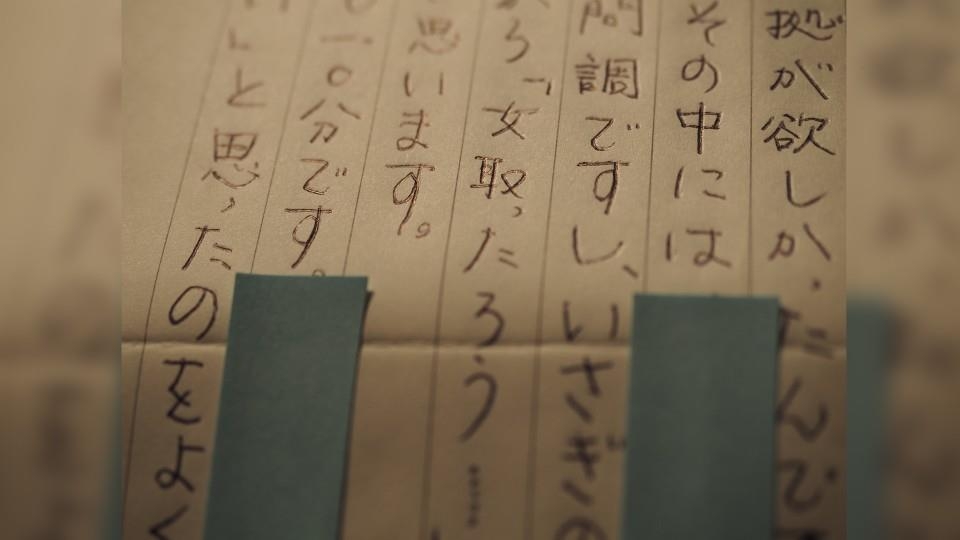 拠が欲しかったんで
その中には
問調ですし、いさぎの
ろ「女取ったろう……
思います。
一〇分です。
と思ったのをよく